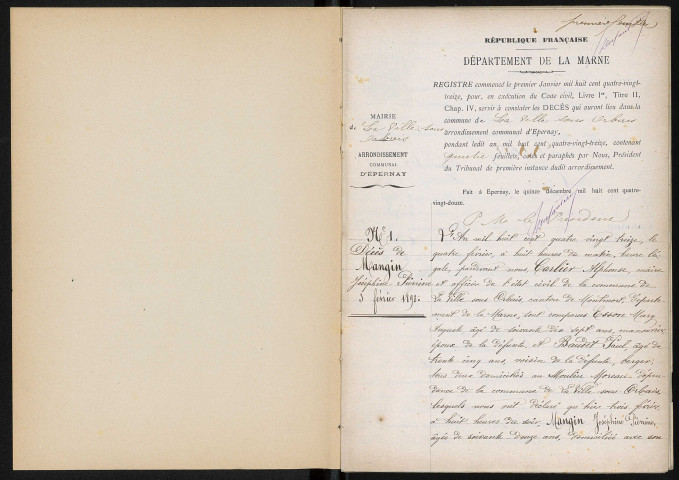 première feuille
RÉPUBLIQUE FRANÇAISE
DÉPARTEMENT DE LA MARNE
REGISTRE commencé le premier Janvier mil huit cent quatre-vingt-
treize, pour, en exécution du Code civil, Livre Ier, Titre II,
Chap. IV, servir à constater les DÉCÈS qui auront lieu dans la
commune de La Ville sous Orbais
arrondissement communal d'Epernay,
pendant ledit an mil huit cent quatre-vingt-treize, contenant
quatre feuillets, cotés et paraphés par Nous, Président
du Tribunal de première instance dudit arrondissement.
Fait à Epernay, le quinze décembre mil huit cent quatre-
vingt-douze.
MAIRIE
de La Ville sous
Orbais
ARRONDISSEMENT
COMMUNAL
D'ÉPERNAY
No 1.
Décès de
Mangin
Joséphine
3 février 189
L'An mil huit cent quatre vingt treize, le
quatre février, à huit heures du matin, heure lé-
gale, pardevant nous, Carlier Alphonse, maire
et officier de l'état civil de la commune de
La Ville sous Orbais, canton de Montmort, départe-
ment de la Marne, sont comparus Esson Mary
Auguste âgé de soixante dix sept ans, manouvrier
époux de la défunte, et Baudet Paul, âgé de
trente cinq ans, voisin de la défunte, berger,
tous deux domiciliés au Moulin Moreau dépen-
dance de la commune de La Ville sous Orbais
lesquels nous ont déclaré qu'hier trois février
à huit heures du soir, Mangin Joséphine
âgée de soixante douze ans, domiciliée avec son